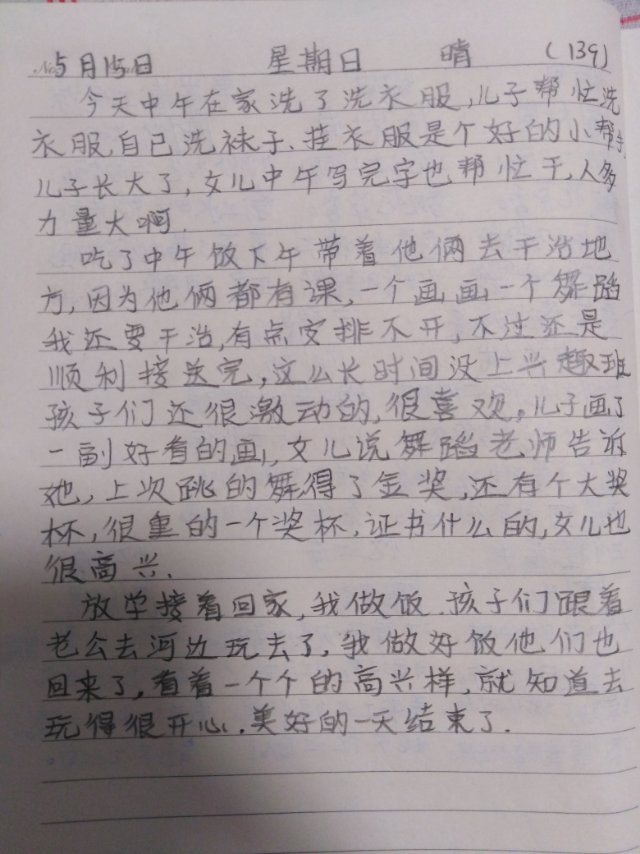 5月15日 星期日 晴 (139)
今天中午在家洗了洗衣服,儿子帮忙洗
衣服,自己洗袜子、挂衣服是个好的小帮手,
儿子长大了,女儿中午写完字也帮忙干,人多
力量大啊.
吃了中午饭下午带着他俩去干治地
方,因为他俩都有课,一个画画一个舞蹈
我还要干治,有点安排不开,不过还是
顺利接送完,这么长时间没上兴趣班
孩子们还很激动的,很喜欢。儿子画了
一副好看的画,女儿说舞蹈老师告诉
她,上次跳的舞得了金奖,还有个大奖
杯,很重的一个奖杯,证书什么的,女儿也
很高兴.
放学接着回家,我做饭.孩子们跟着
老公去河边玩去了,我做好饭他们也
回来了,看着一个个的高兴样,就知道去
玩得很开心.美好的一天结束了.